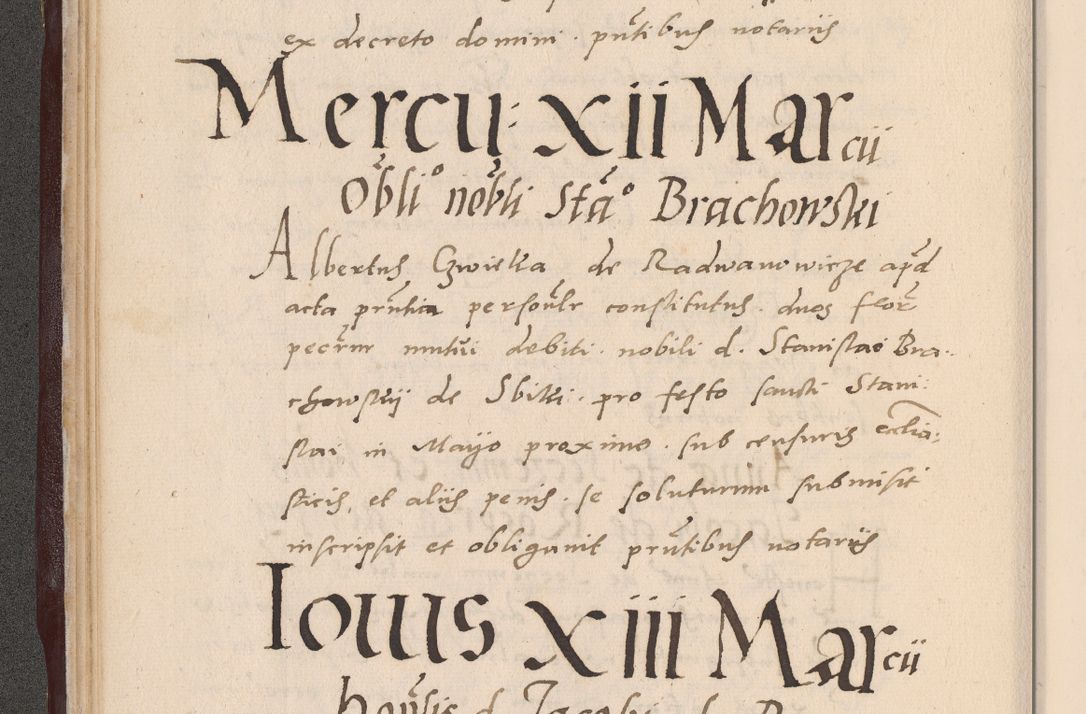 ex decreto domini. pñtibus notariis
Mercu: XII Marcii
Obli° nobli Sta° Brachowski
Albertus Czwieka de Radwanowicze apd
acta pñtia personlr constitutus. duos flor
pecunr mutui debiti. nobili d. Stanislao Bra-
chowskij de Sbiki. pro festo sancti Stani:
slai in Mayo proximo. sub censuris ecclia:
sticis, et aliis penis. se soluturum submisit
inscripsit et obligavit pñtibus notariis
Iovis XIII Marcii
d. Jacobi de